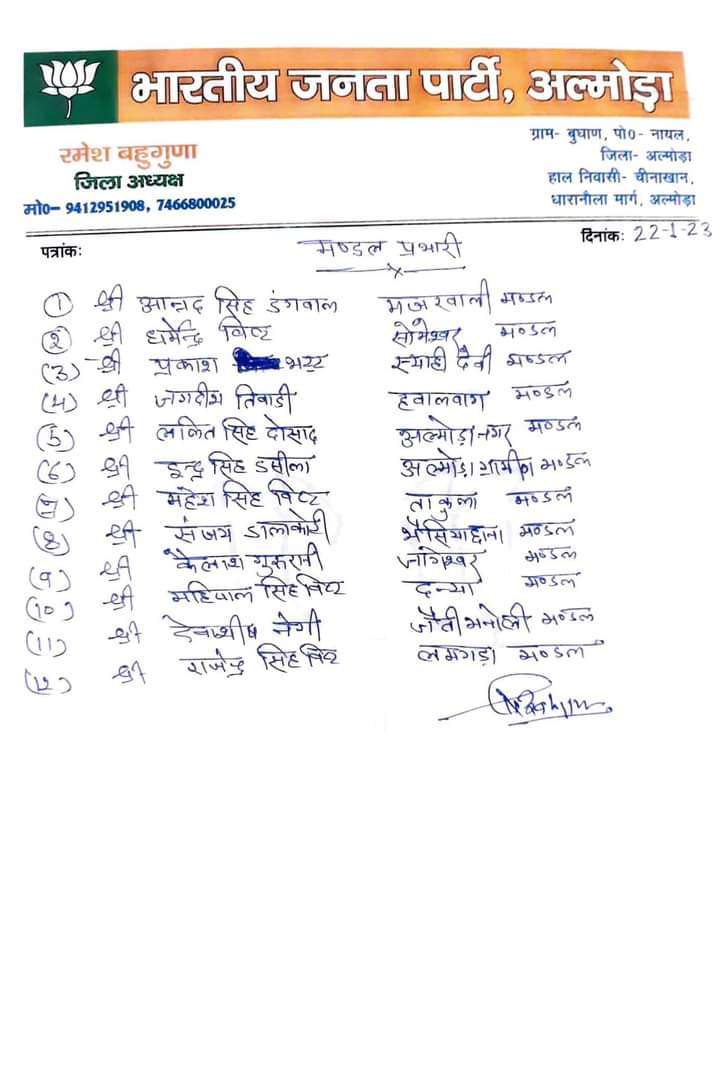 भारतीय जनता पार्टी, अल्मोड़ा
रमेश बहुगुणा
जिला अध्यक्ष
मो०- 9412951908, 7466800025
ग्राम- बुघाण, पो०- नायल,
जिला- अल्मोड़ा
हाल निवासी- चीनाखान,
धारानौला मार्ग, अल्मोड़ा
पत्रांकः
दिनांकः 22-1-23
मण्डल प्रभारी
(1) श्री आनन्द सिंह डंगवाल मजखाली मण्डल
(2) श्री धर्मेन्द्र विष्ट सोमेश्वर मण्डल
(3) श्री प्रकाश भट्ट स्याही देवी मण्डल
(4) श्री जगदीश तिवाडी हवालबाग मण्डल
(5) श्री ललित सिंह दोसाद अल्मोड़ा नगर मण्डल
(6) श्री इन्द्र सिंह डसीला अल्मोड़ा ग्रामीण मण्डल
(7) श्री महेश सिंह विष्ट ताकुला मण्डल
(8) श्री संजय डालाकोटी भैसियाछाना मण्डल
(9) श्री कैलाश गुरुरानी जागेश्वर मण्डल
(10) श्री महिपाल सिंह विष्ट दन्या मण्डल
(11) श्री देवाशीष नेगी जैती मण्डल
(12) श्री राजेन्द्र सिंह विष्ट लमगड़ा मण्डल